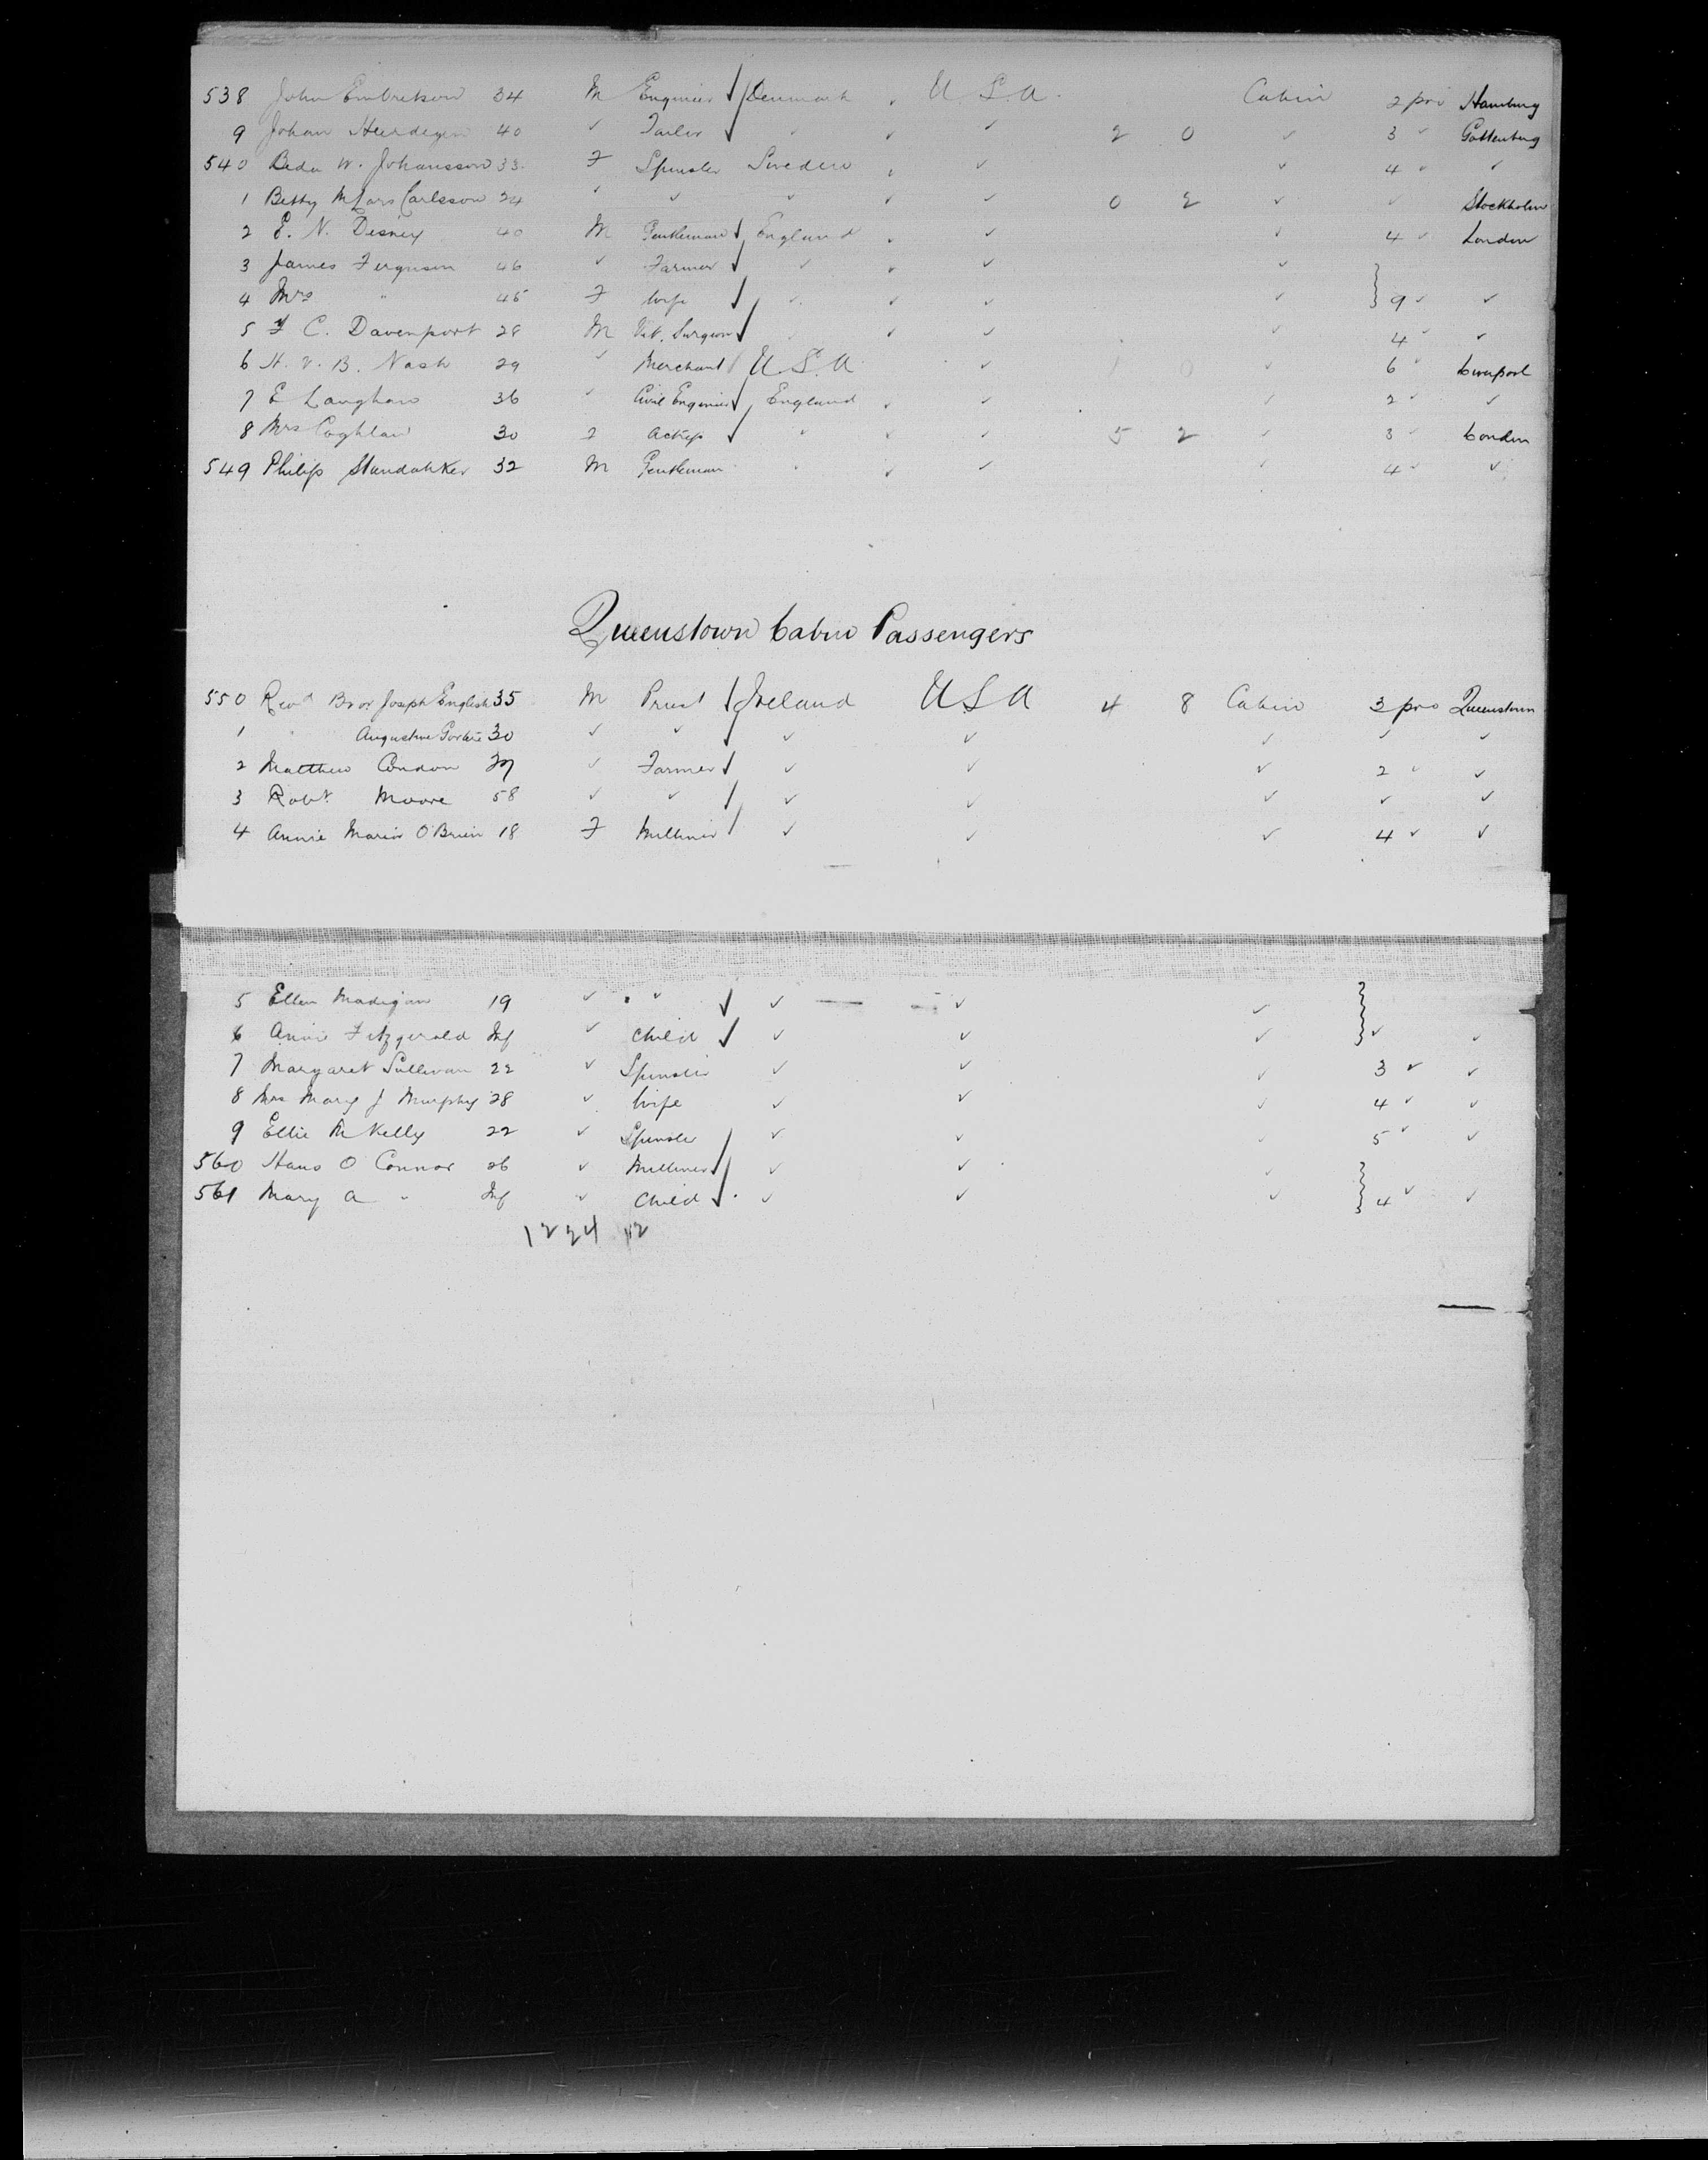 538 John Embretson 34 M Engineer Denmark U.S.A. Cabin 2 pro Hamburg
9 Johan Heerdegen 40 ✓ Tailor ✓ ✓ ✓ 2 0 ✓ 3 ✓ Gottenburg
540 Beda W. Johansson 33 F Spinster Sweden ✓ ✓ 4 ✓ ✓
1 Betty M Lars Carlsson 24 ✓ ✓ ✓ ✓ ✓ 0 2 ✓ ✓ Stockholm
2 E. N. Disney 40 M Gentleman England ✓ ✓ 4 ✓ London
3 James Ferguson 46 ✓ Farmer ✓ ✓ ✓ ✓
4 Mrs " 45 F Wife ✓ ✓ ✓ ✓ 9 ✓ ✓
5 F C. Davenport 28 M Vet. Surgeon ✓ ✓ ✓ 4 ✓ ✓
6 H. V. B. Nash 29 ✓ Merchant U.S.A ✓ 1 0 ✓ 6 ✓ Liverpool
7 E Langham 36 ✓ Civil Engineer England ✓ ✓ 2 ✓ ✓
8 Mrs Coghlan 30 F Actress ✓ ✓ ✓ 5 2 ✓ 3 ✓ London
549 Philip 32 M Gentleman ✓ ✓ ✓ ✓ 4 ✓ ✓
Queenstown Cabin Passengers
550 Revd Bror Joseph English 35 M Priest Ireland USA 4 8 Cabin 3 pro Queenstown
1 " Augustine 30 ✓ ✓ ✓ ✓ ✓ ✓ ✓
2 Matthew Condon ✓ Farmer ✓ ✓ ✓ 2 ✓ ✓
3 Robt. Moore 58 ✓ ✓ ✓ ✓ ✓ ✓ ✓
4 Annie Maria O'Brien 18 F Milliner ✓ ✓ ✓ 4 ✓ ✓
5 Ellen Madigan 19 ✓ " ✓ ✓ ✓
6 Annie Fitzgerald Inf ✓ Child ✓ ✓ ✓ ✓ ✓
7 Margaret Sullivan 22 ✓ Spinster ✓ ✓ ✓ 3 ✓ ✓
8 Mrs Mary J Murphy 28 ✓ Wife ✓ ✓ ✓ 4 ✓ ✓
9 Ellie M Kelly 22 ✓ Spinster ✓ ✓ ✓ 5 ✓ ✓
560 Hans O Connor 26 ✓ Milliner ✓ ✓ ✓
561 Mary A " Inf ✓ Child ✓ ✓ ✓ 4 ✓ ✓
12 24 12